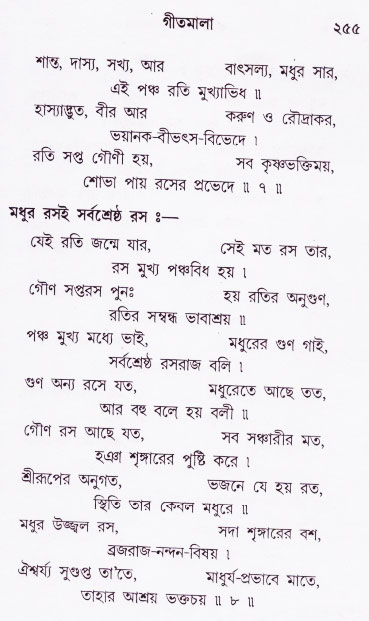 গীতমালা ২৫৫
শান্ত, দাস্য, সখ্য, আর বাৎসল্য, মধুর সার,
এই পঞ্চ রতি মুখ্যাভিধ ॥
হাস্যাদ্ভুত, বীর আর করুণ ও রৌদ্রাকর,
ভয়ানক-বীভৎস-বিভেদে ।
রতি সপ্ত গৌণী হয়, সব কৃষ্ণভক্তিময়,
শোভা পায় রসের প্রভেদে ॥ ৭ ॥
মধুর রসই সর্বশ্রেষ্ঠ রস ঃ—
যেই রতি জন্মে যার, সেই মত রস তার,
রস মুখ্য পঞ্চবিধ হয় ।
গৌণ সপ্তরস পুনঃ হয় রতির অনুগুণ,
রতির সম্বন্ধ ভাবাশ্রয় ॥
পঞ্চ মুখ্য মধ্যে ভাই, মধুরের গুণ গাই,
সর্বশ্রেষ্ঠ রসরাজ বলি ।
গুণ অন্য রসে যত, মধুরেতে আছে তত,
আর বহু বলে হয় বলী ॥
গৌণ রস আছে যত, সব সঞ্চারীর মত,
হঞা শৃঙ্গারের পুষ্টি করে ।
শ্রীরূপের অনুগত, ভজনে যে হয় রত,
স্থিতি তার কেবল মধুরে ॥
মধুর উজ্জ্বল রস, সদা শৃঙ্গারের বশ,
ব্রজরাজ-নন্দন-বিষয় ।
ঐশ্বর্য্য সুগুপ্ত তা'তে, মাধুর্য-প্রভাবে মাতে,
তাহার আশ্রয় ভক্তচয় ॥ ৮ ॥